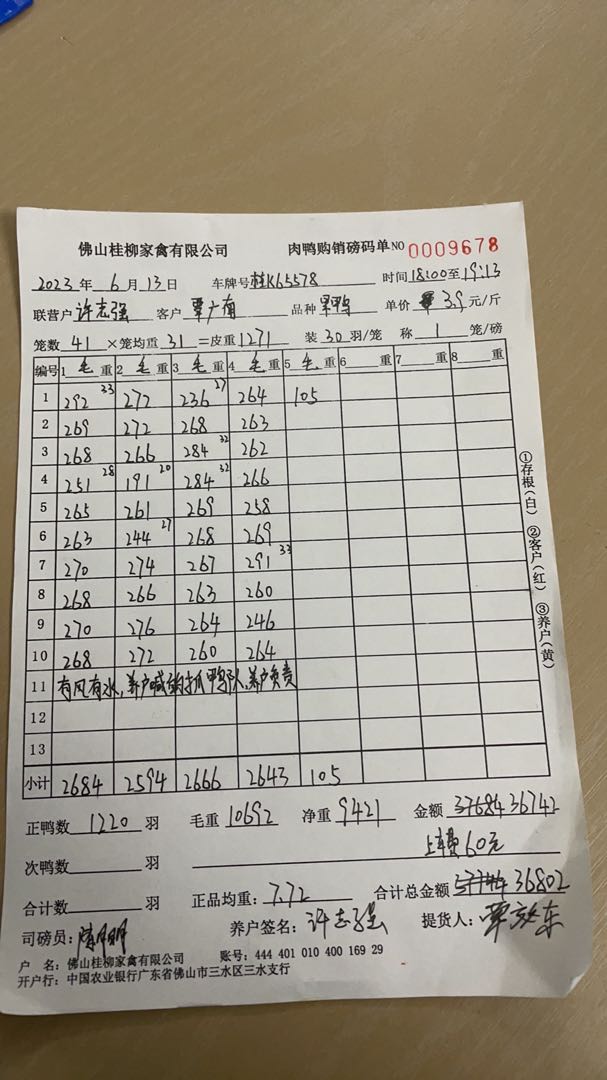 佛山桂柳家禽有限公司 肉鸭购销磅码单NO 0009678
2023年 6月 13日 车牌号 桂K65578 时间 18:00至 19:13
联营户 许志强 客户 覃广南 品种 单价 3.9 元/斤
笼数 41 ×笼均重 31 =皮重 1271 装 30 羽/笼 称 1 笼/磅
编号 1 毛 重 2 毛 重 3 毛 重 4 毛 重 5 毛 重 6 重 7 重 8 重
1 292 33 272 236 27 264 105
2 269 272 268 263
3 268 266 284 32 262
4 251 28 191 20 284 32 266
5 265 261 269 258
6 263 244 27 268 269
7 270 274 267 291 33
8 268 266 263 260
9 270 276 264 246
10 268 272 260 264
11 有风有水,养户喊的抓鸭队,养户负责
12
13
小计 2684 2594 2666 2643 105
正鸭数 1220 羽 毛重 10692 净重 9421 金额 37684 36742
次鸭数 羽 上车费60元
合计数 羽 正品均重: 7.72 合计总金额 36802
司磅员: 养户签名: 许志强 提货人:
户 名: 佛山桂柳家禽有限公司 账号: 444 401 010 400 169 29
开户行: 中国农业银行广东省佛山市三水区三水支行
①存根(白) ②客户(红) ③养户(黄)